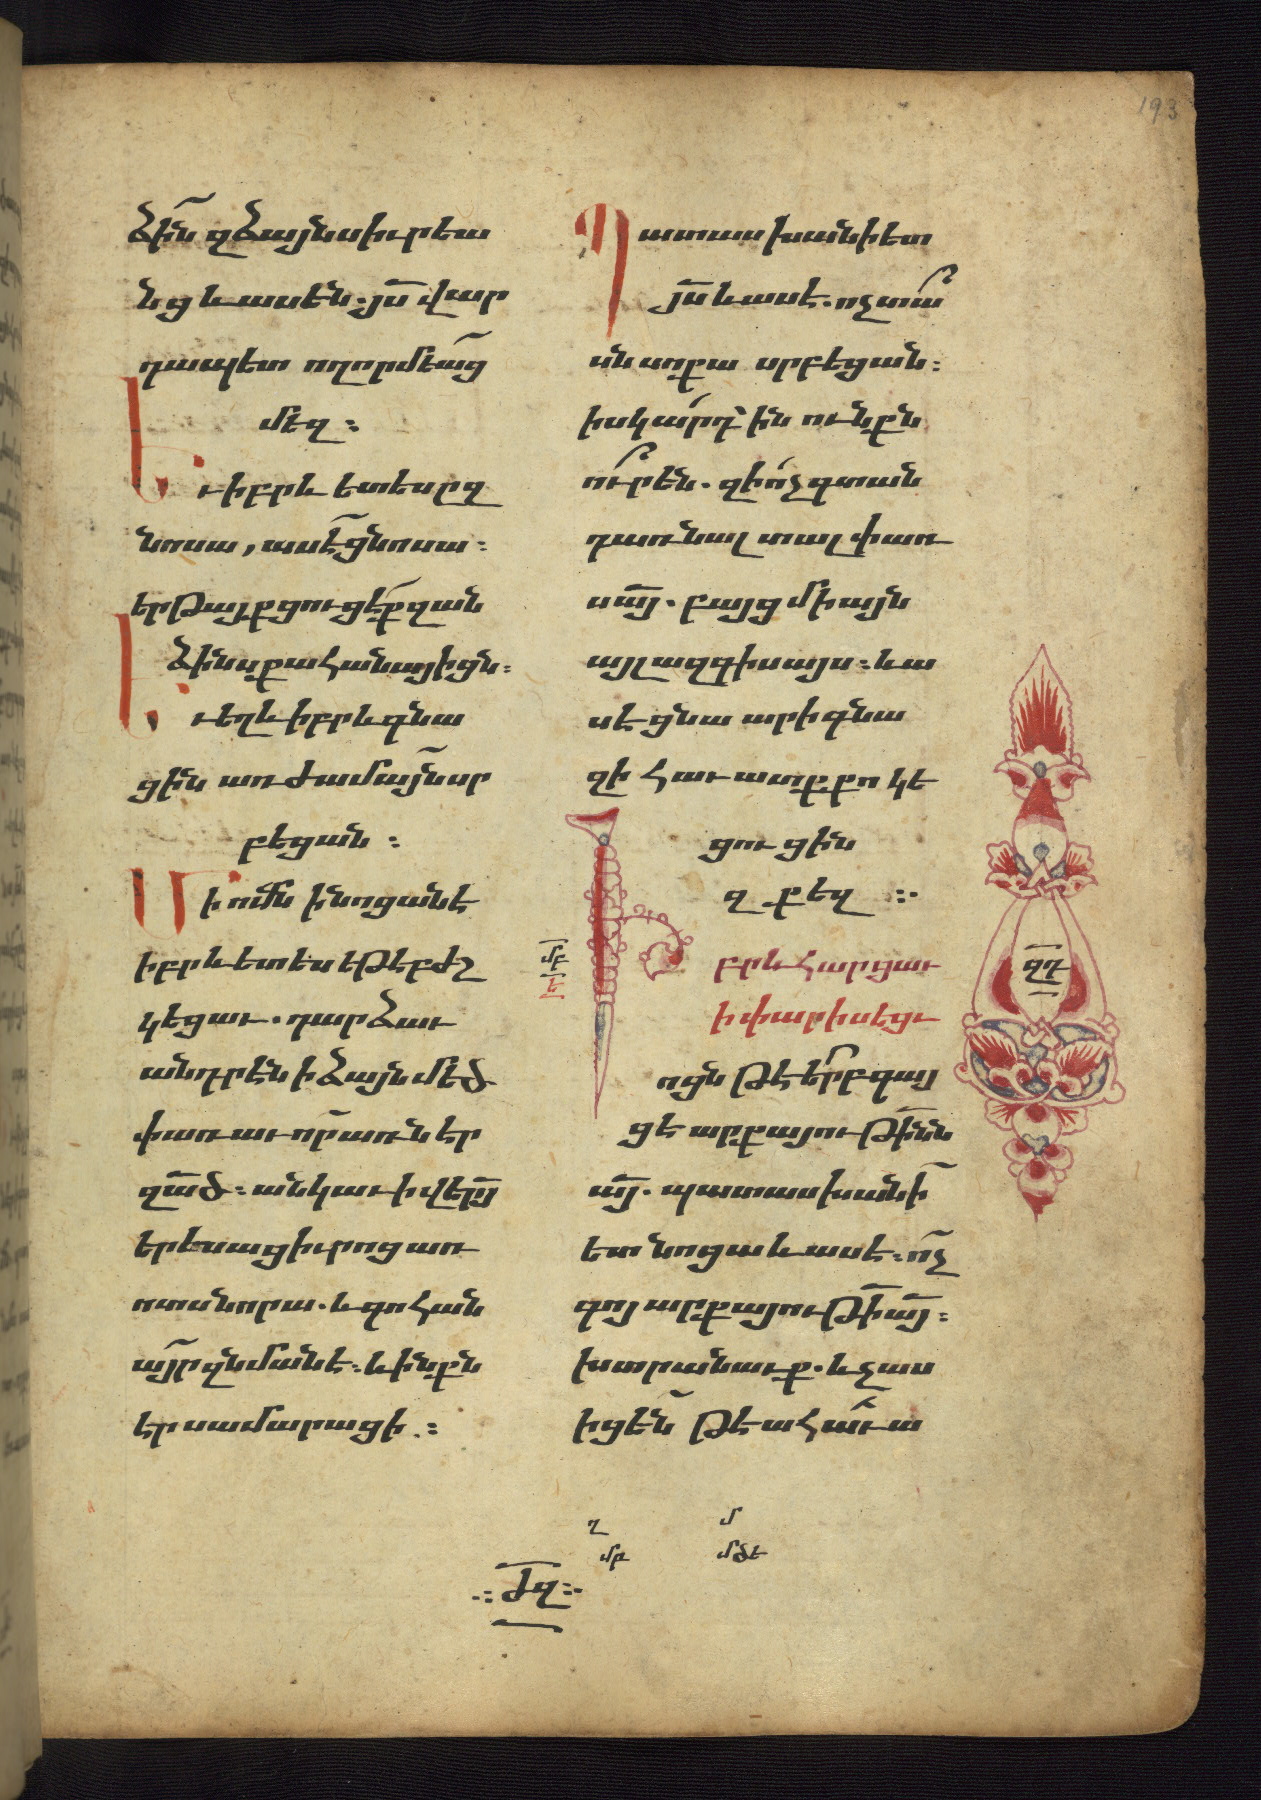 193
ձին զձայնս իւրեա
նց և ասեն. յս վար
դապետ ողորմեաց
մեզ :
Եւ իբրև ետես ըզ
նոսա, ասէ ցնոսա :
երթայք ցուցէք զան
ձինս քահանայիցն :
Եւ եղև իբրև գնա
ցին առժամայն սր
բեցան :
Մի ոմն ի նոցանէ
իբրև ետես եթե բժշ
կեցաւ. դարձաւ
անդրէն ի ձայն մեծ
փառաւոր առներ
զած : անկաւ ի վերայ
երեսաց իւրոց առ
ոտս նորա. և գոհան
այր զնմանէ : և ինքն
էր սամարացի :
Պատասխանի ետ
յս և ասէ. ոչ տա
սն սոքա սրբեցան :
իսկ արդ ինունքն
ուր են. զի ոչ գտան
դառնալ տալ փառ
ս այ. բայց միայն
այլազգիս այս : և ա
սէ ցնա արի գնա
զի հաւատք քո կե
ցուցին
զքեզ :·
մբ
է
Իբրև հարցաւ
ի փարիսեցւ
ոցն թէ երբ գայ
ցե արքայութինն
այ. պատասխանի
ետ նոցա և ասէ : ոչ
գոյ արքայութի այ :
խտրանաւք. և չաս
իցեն թե ահաւա
զդ
ղ
մբ
մ
մծէ
ժզ